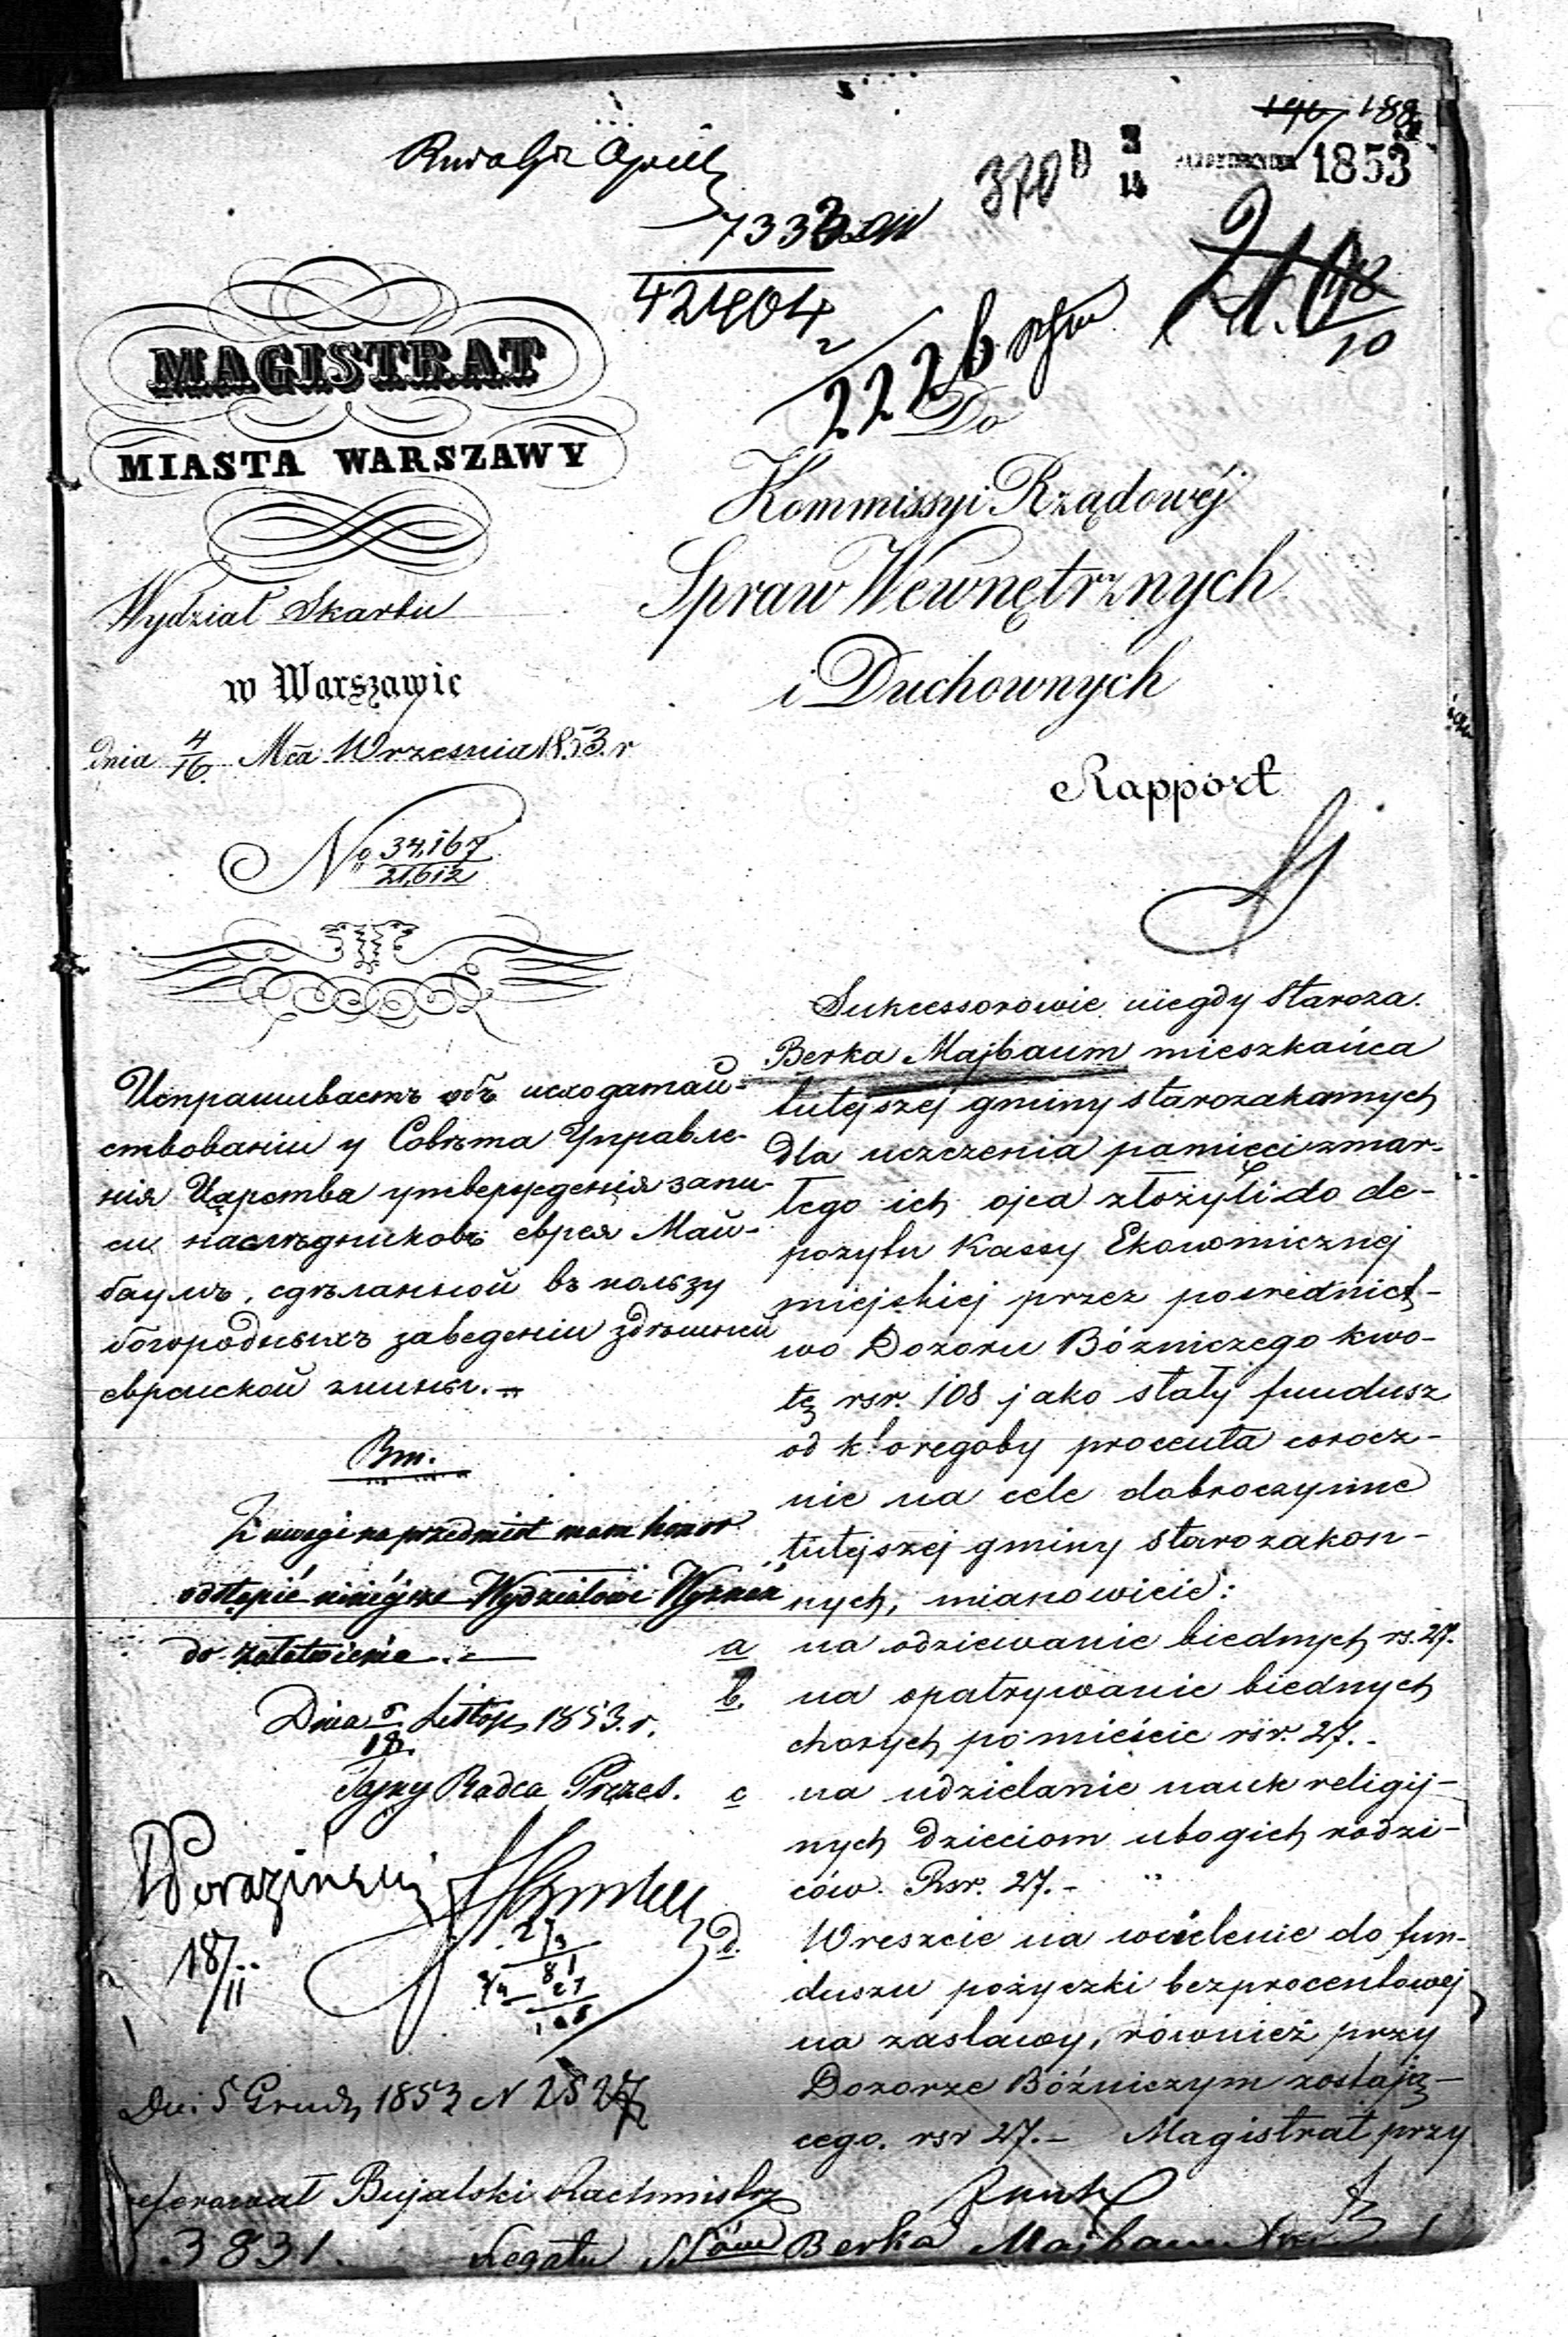 190 188
370
3
15
PAŹDZIERNIKA 1853
7333
42404
2
2226
18
10
MAGISTRAT
MIASTA WARSZAWY
Wydział Skarbu
w Warszawie
dnia 4/16. Mca Września 1853. r
No 34,167
21,612
Do
Kommissyi Rządowéj
Spraw Wewnętrznych
i Duchownych
Rapport
Испрашиваетъ объ исходатай-
ствованіи у Совѣта Управле-
нія Царства утвержденія запи-
си наслѣдниковъ еврея Май-
баумъ, сдѣланной въ пользу
богородныхъ заведеніи здѣшней
еврейской гмины.
Bm.
Z uwagi na przedmiot mam honor
odstąpić niniéjsze Wydziałowi Wyznań
do załatwienia.
Dnia 6/18. Listop. 1853. r.
Tajny Radca Prezes.
18/11
27
3
81
27
108
Dn. 5 Grud. 1853 N 2527
referował Bujalski Rachmistrz
3831. Legatu Nów Berka Majbaum
Sukcessorowie niegdy Staroza.
Berka Majbaum mieszkańca
tutejszej gminy starozakonnych
dla uczczenia pamięci zmar-
łego ich ojca złożyli do de-
pozytu Kassy Ekonomicznej
miejskiej przez pośrednict-
wo Dozoru Bózniczego kwo-
tę rsr. 108 jako stały fundusz
od któregoby procenta corocz-
nie na cele dobroczynne
tutejszej gminy starozakon-
nych, mianowicie:
a na odziewanie biednych rs. 27.
b. na opatrywanie biednych
chorych po mieście rsr. 27.-
c na udzielanie nauk religij-
nych dzieciom ubogich rodzi-
ców. Rsr. 27.-
d. Wreszcie na wcielenie do fun-
duszu pożyczki bezprocentowej
na zastawy, również przy
Dozorze Bóźniczym zostają-
cego. rsr 27.- Magistrat przy